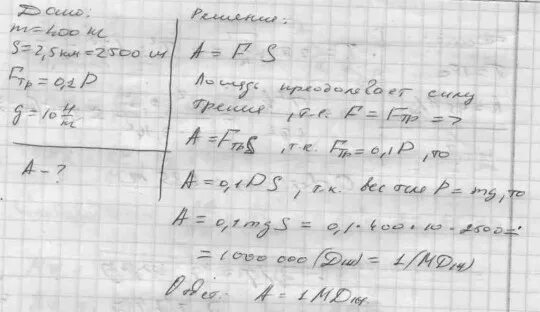 Дано:
m=400 кг
S=2,5км=2500 м
Fтр=0,1P
g=10 Н/кг
A-?
Решение:
A = F S
Лошадь преодолевает силу
трения, т.е. F = Fтр =>
A = FтрS, т.к. Fтр=0,1P, то
A = 0,1PS, т.к. вес тела P = mg, то
A = 0,1mgS = 0,1·400·10·2500=
= 1000 000 (Дж) = 1(МДж)
Ответ: A = 1МДж.